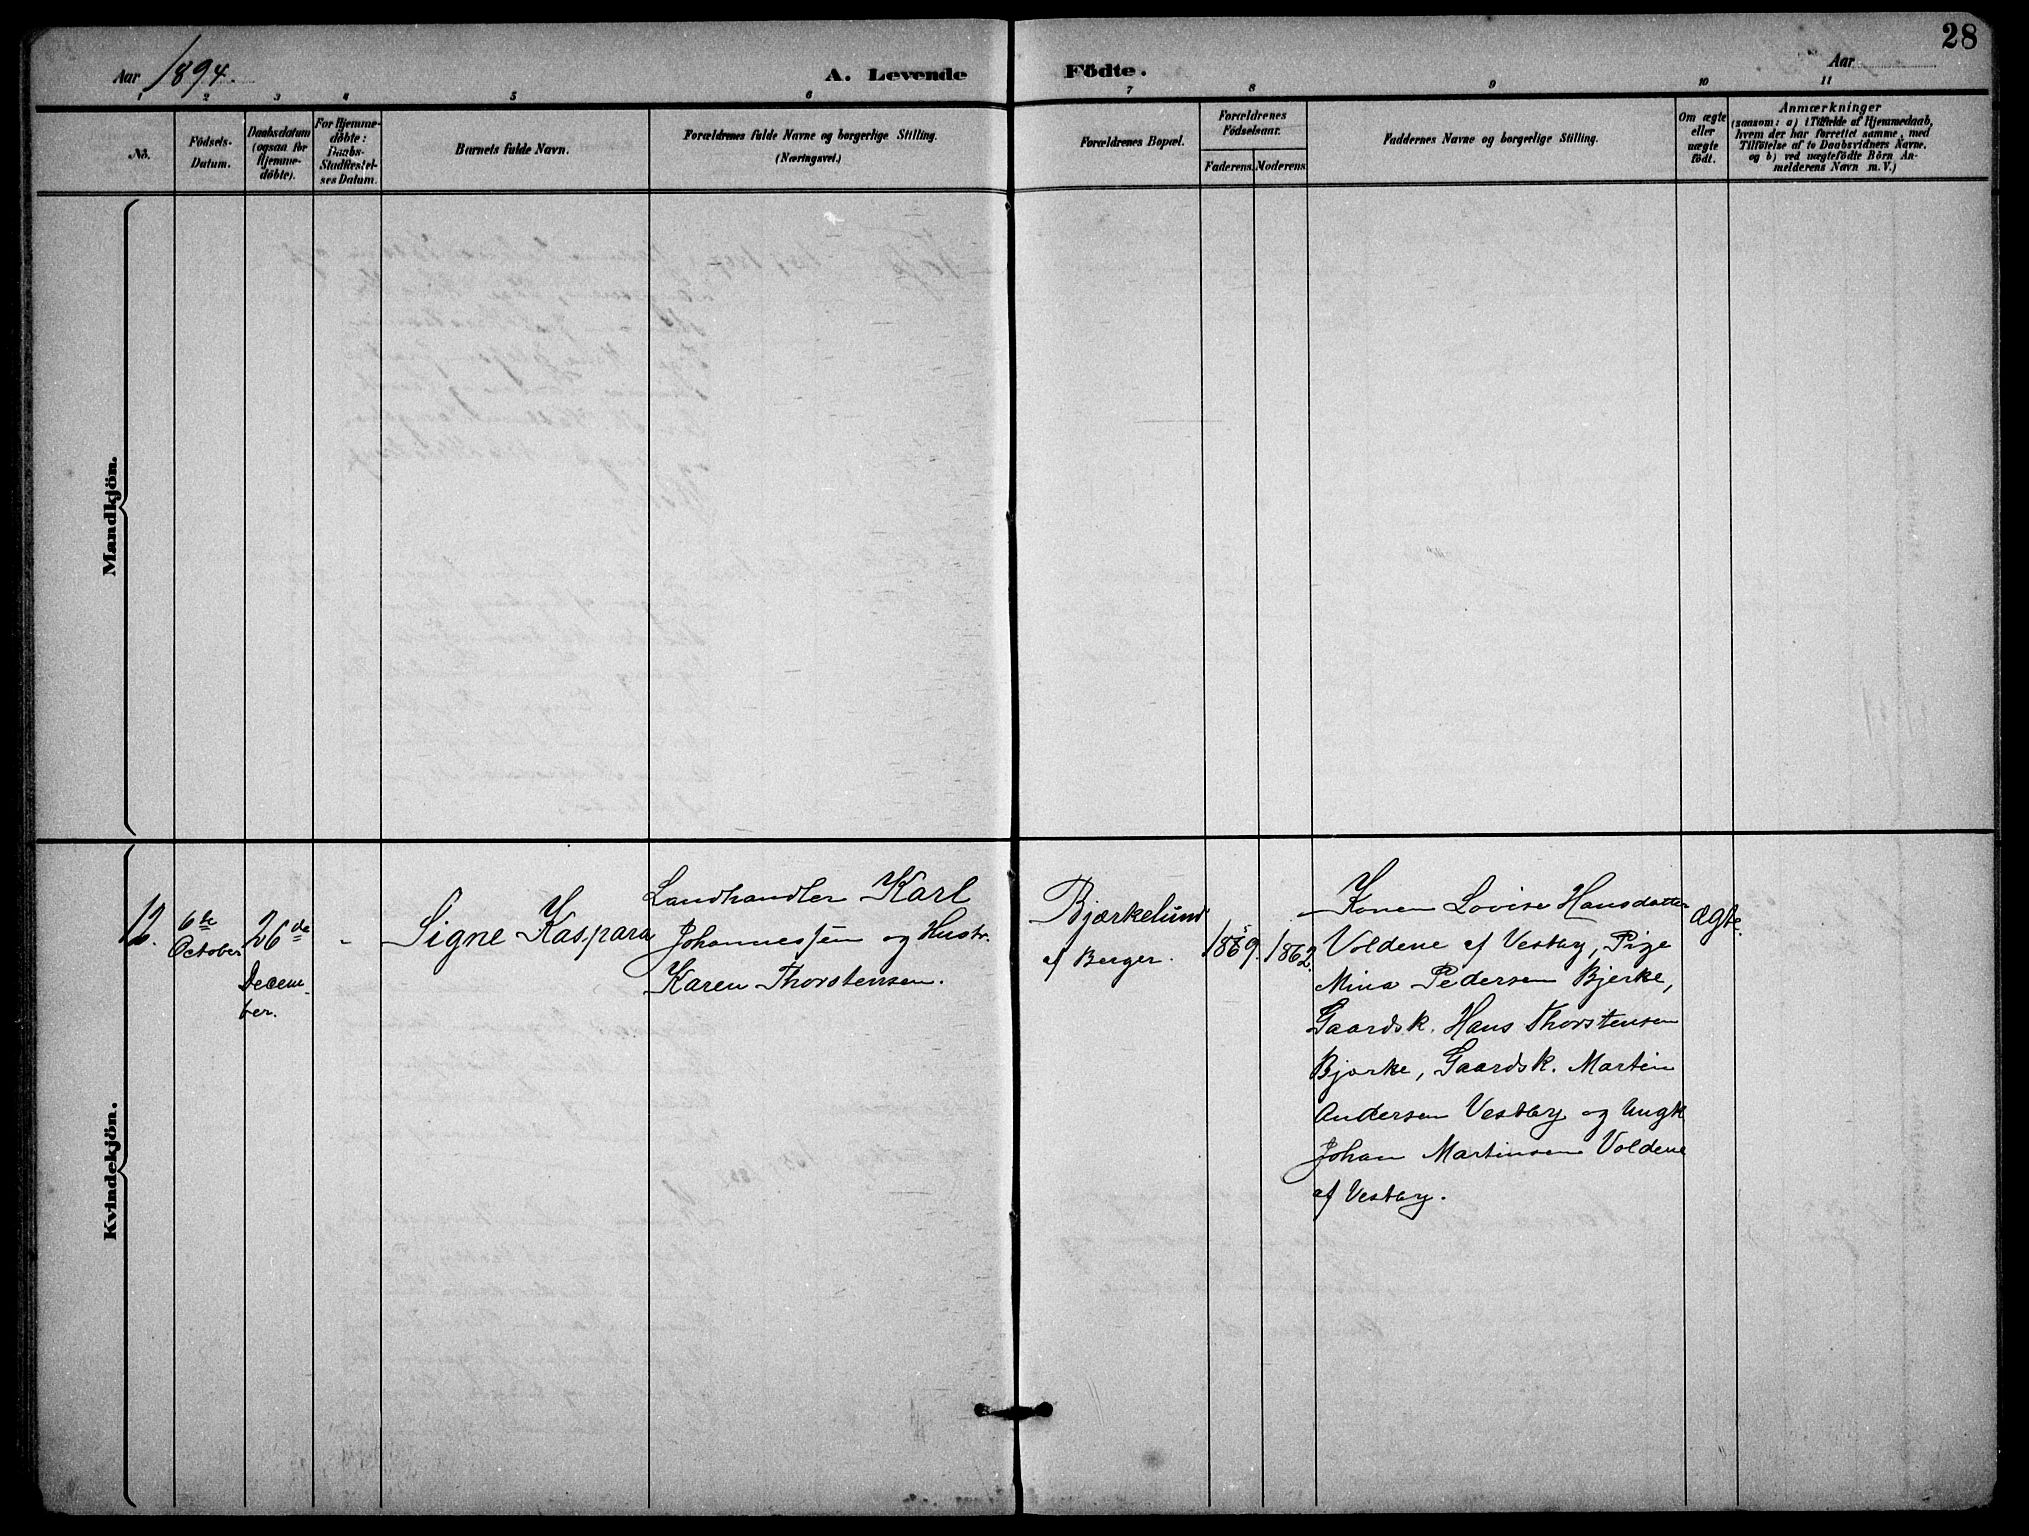 28
Aar 1894.
A. Levende Födte.
Aar
1 2 3 4 5 6 7 8 9 10 11
No.
Födsels-
Datum.
Daabsdatum
(ogsaa for
Hjemme-
döbte).
For Hjemme-
döbte:
Daabs-
Stadfæstel-
ses Datum.
Barnets fulde Navn.
Forældrenes fulde Navne og borgerlige Stilling.
(Næringsvei.)
Forældrenes Bopæl.
Forældrenes
Födselsaar.
Faderens. Moderens.
Faddernes Navne og borgerlige Stilling.
Om ægte
eller
uægte
födt.
Anmærkninger
(saasom: a) i Tilfælde af Hjemmedaab,
hvem der har forrettet samme, med
Tilföielse af to Daabsvidners Navne,
og b) ved uægtefödte Börn An-
melderens Navn m. V.)
Mandkjön.
Kvindekjön.
12.
6te
October
26de
Decem-
ber.
-
Signe Kaspara
Landhandler Karl
Johannessen og Hustr.
Karen Thorstensen.
Bjærkelund
af Berger.
1869.
1862.
Konen Lovise Hansdatter
Voldene af Vestby, Pige
Mina Pedersen Bjerke,
Gaardsk. Hans Thorstensen
Bjerke, Gaardsk. Martin
Andersen Vestby og Ungk
Johan Martinsen Voldene
af Vestby.
ægte.